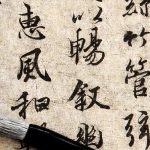 絲竹管弦
以暢叙幽
惠風和